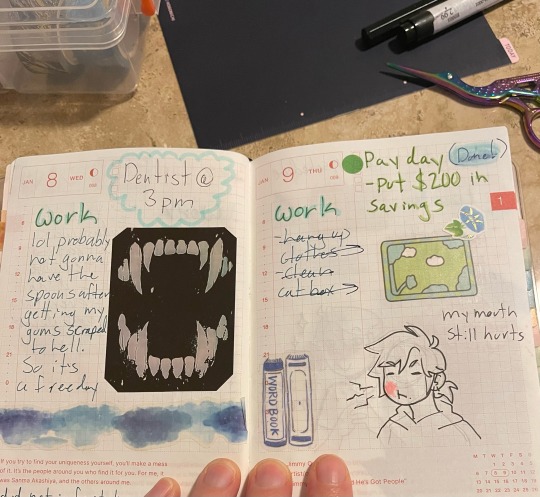 JAN 8 WED
Dentist @
3pm
work
lol probably
not gonna
have the
spoons after
getting my
gums scraped
to hell.
So it's
a free day
If you try to find your uniqueness yourself, you'll make a mess
of it. It's the people around you who find it for you. For me, it
was Sanma Akashiya, and the others around me.
JAN 9 THU
Pay day (Done!)
-Put $200 in
savings
work
-hang up
clothes
-clean
cat box
WORD BOOK
my mouth
still hurts
1
TODAY
Jimmy
He's Got People"
M T W T F S S
1 2 3 4 5
6 7 8 9 10 11 12
13 14 15 16 17 18 19
20 21 22 23 24 25 26